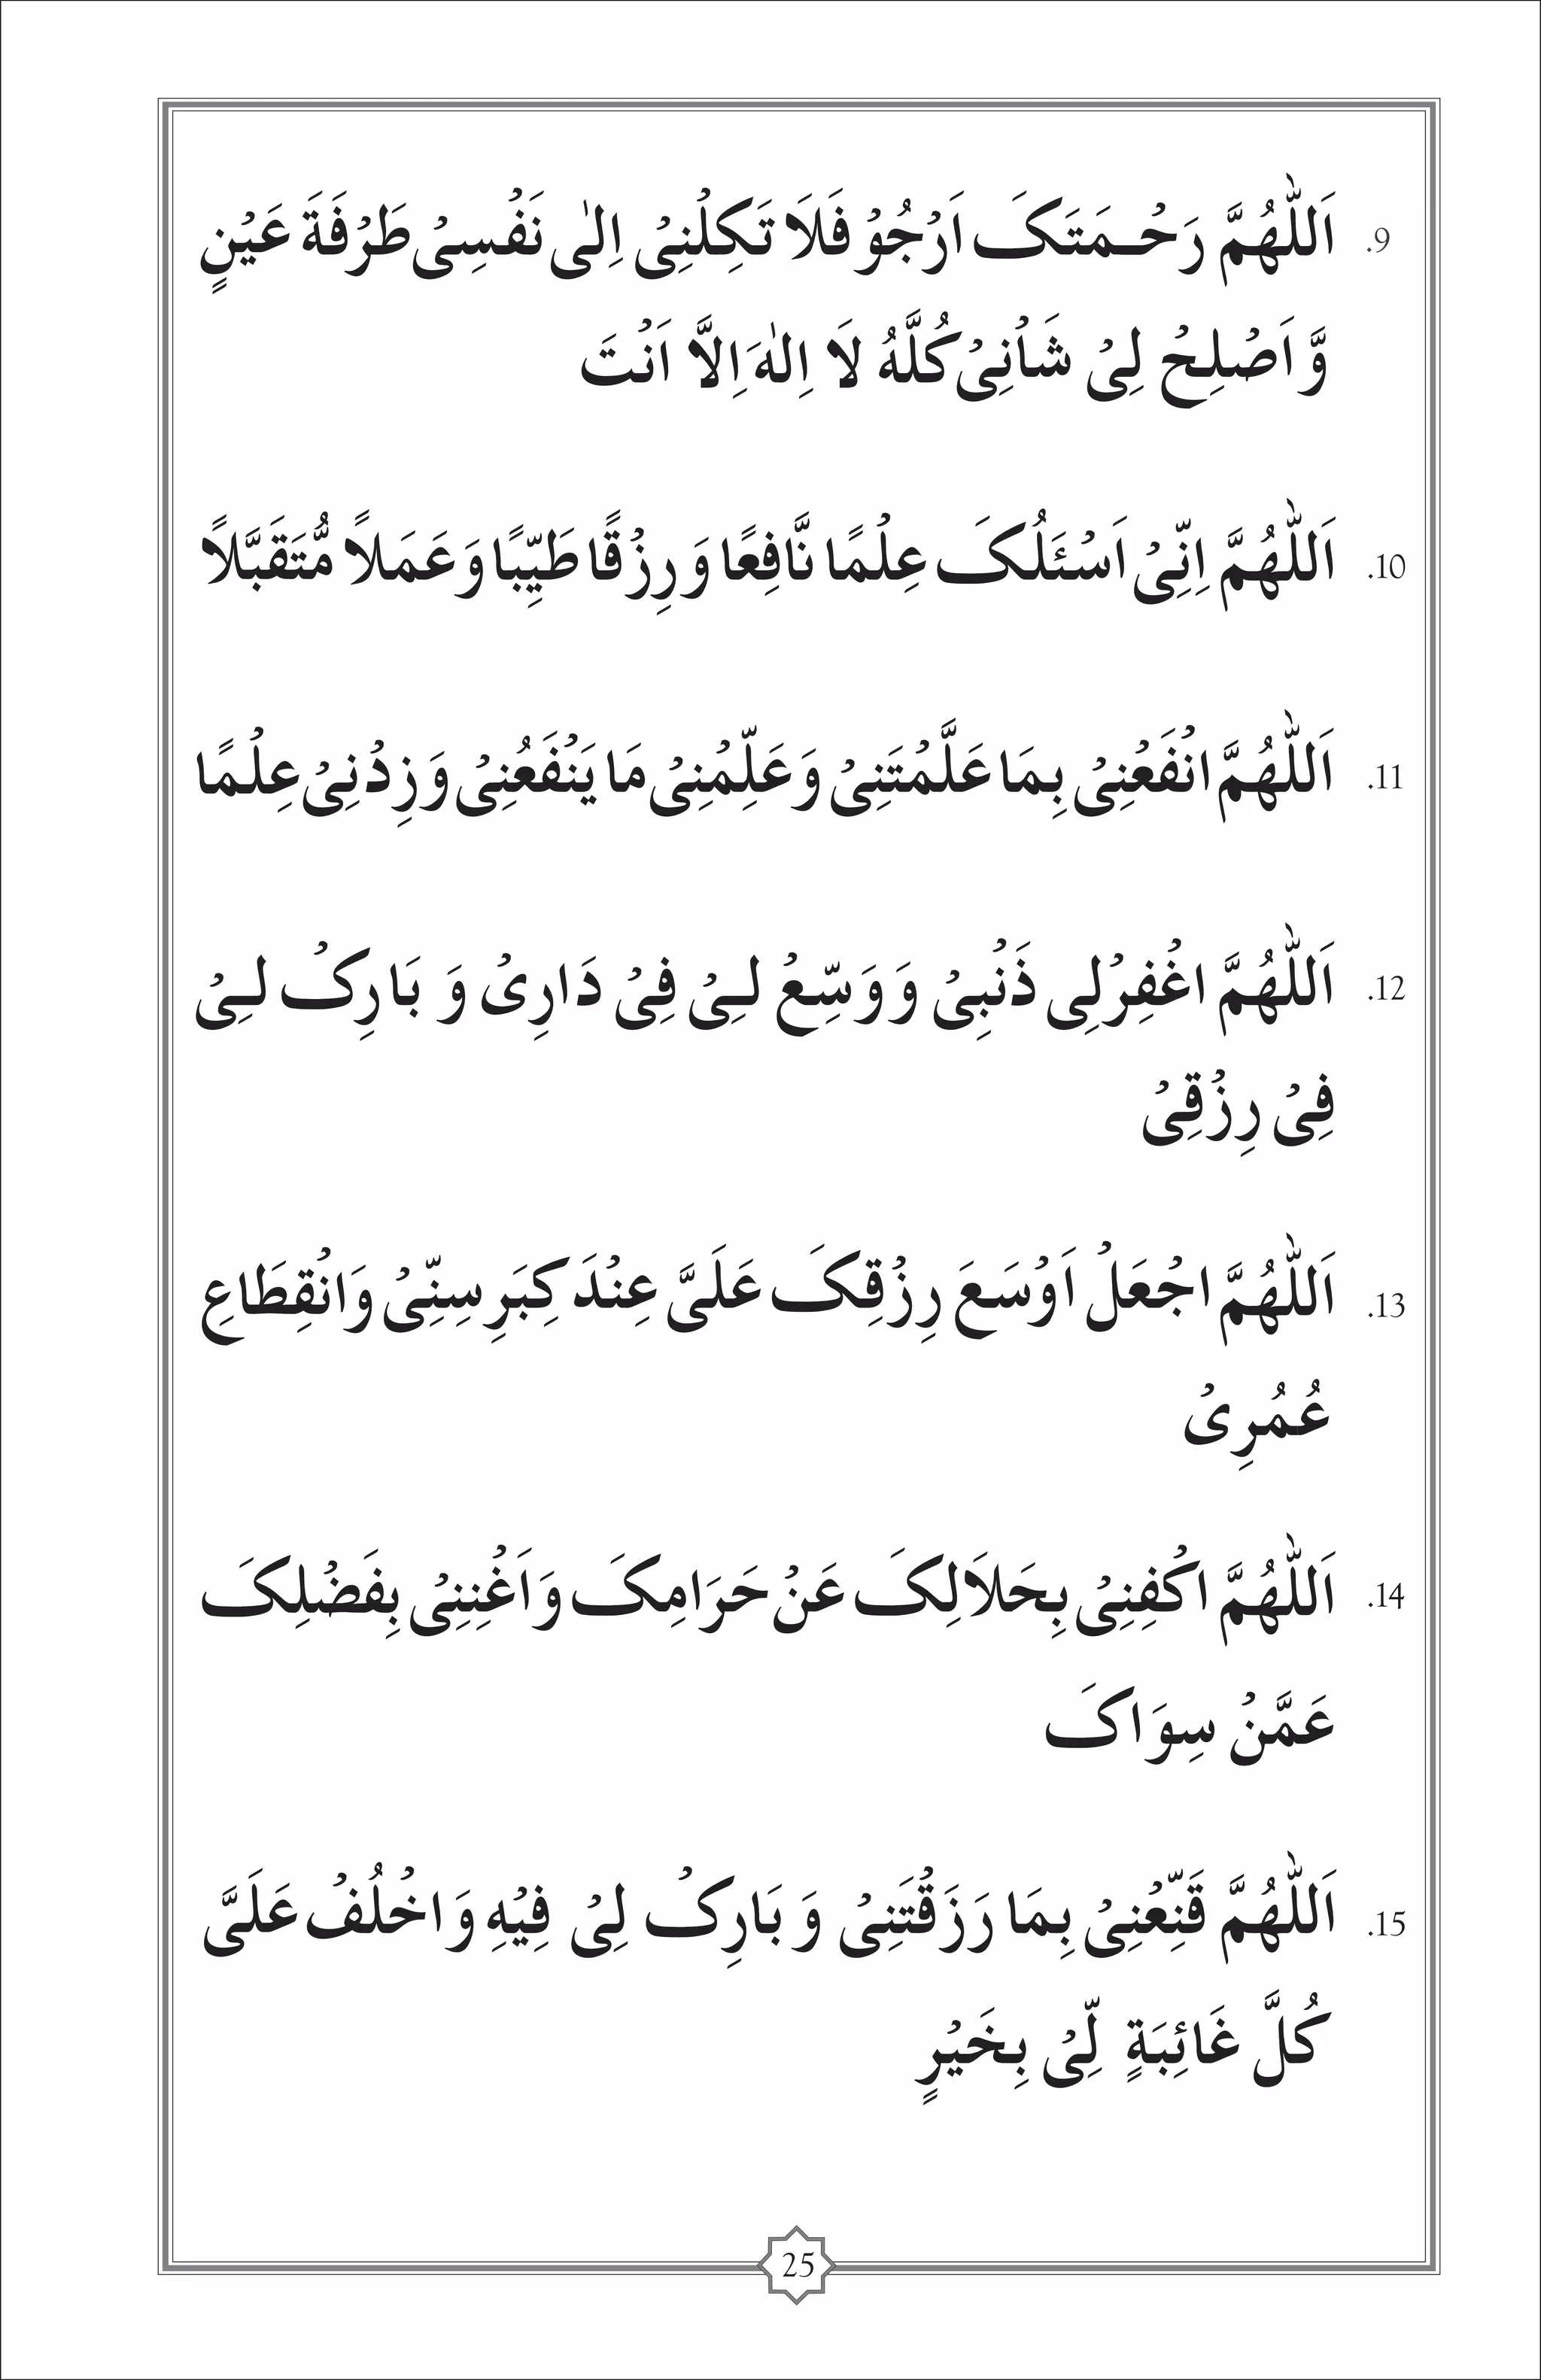 9. اَللّٰهُمَّ رَحْمَتَکَ اَرْجُوْ فَلَا تَکِلْنِیْ اِلٰی نَفْسِیْ طَرْفَةَ عَیْنٍ
وَّ اَصْلِحْ لِیْ شَانِیْ کُلَّهٗ لَا اِلٰهَ اِلَّا اَنْتَ
10. اَللّٰهُمَّ اِنِّیْ اَسْئَلُکَ عِلْمًا نَّافِعًا وَ رِزْقًا طَیِّبًا وَعَمَلاً مُّتَقَبَّلاً
11. اَللّٰهُمَّ انْفَعْنِیْ بِمَا عَلَّمْتَنِیْ وَعَلِّمْنِیْ مَا یَنْفَعُنِیْ وَزِدْنِیْ عِلْمًا
12. اَللّٰهُمَّ اغْفِرْلِی ذَنْبِیْ وَ وَسِّعْ لِیْ فِیْ دَارِیْ وَ بَارِکْ لِیْ
فِیْ رِزْقِیْ
13. اَللّٰهُمَّ اجْعَلْ اَوْسَعَ رِزْقِکَ عَلَیَّ عِنْدَ کِبَرِ سِنِّیْ وَانْقِطَاعِ
عُمُرِیْ
14. اَللّٰهُمَّ اکْفِنِیْ بِحَلَالِکَ عَنْ حَرَامِکَ وَاَغْنِنِیْ بِفَضْلِکَ
عَمَّنْ سِوَاکَ
15. اَللّٰهُمَّ قَنِّعْنِیْ بِمَا رَزَقْتَنِیْ وَ بَارِکْ لِیْ فِیْهِ وَاخْلُفْ عَلَیَّ
کُلَّ غَائِبَةٍ لِّیْ بِخَیْرٍ
25